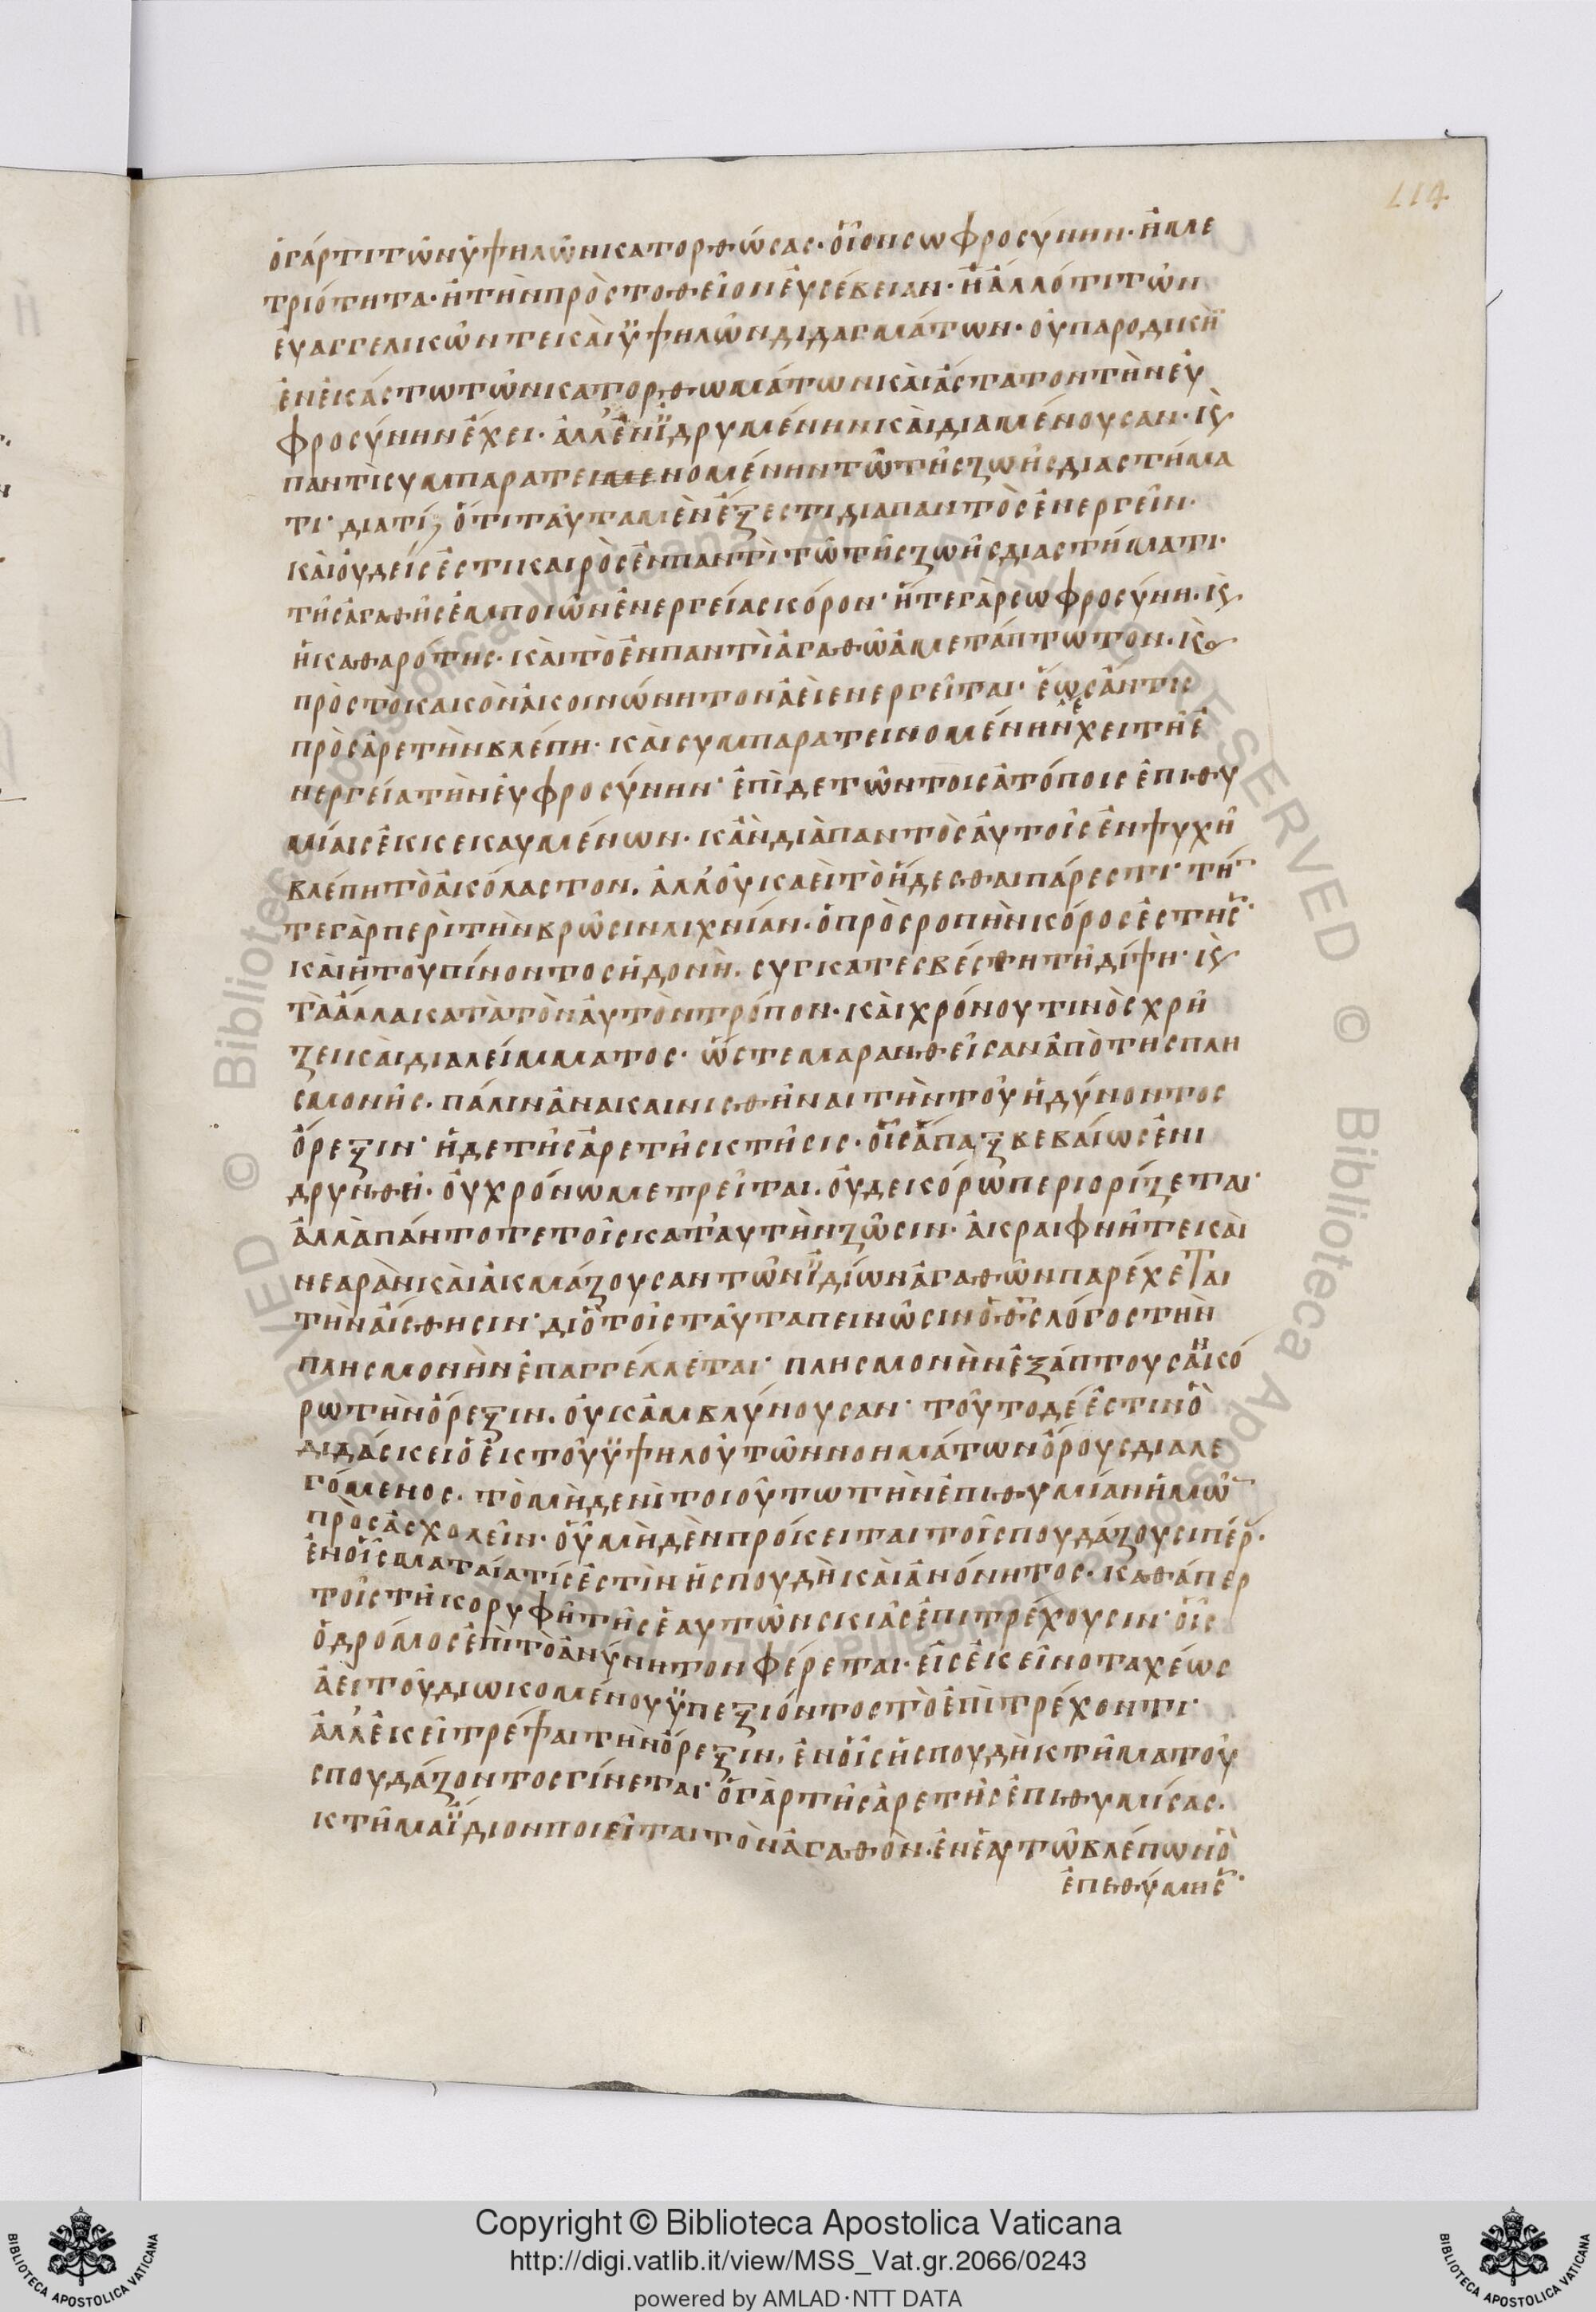 114
ὁ γάρ τι τῶν ὑψηλῶν κατορθώσας· οἷον σωφροσύνην· ἢ με
τριότητα· ἢ τὴν πρὸς το θεῖον εὐσέβειαν· ἢ ἄλλό τι τῶν
εὐαγγελικῶν τε καὶ ὑψηλῶν διδαγμάτων· οὐ παροδικὴ
ἐν ἑκάστω τῶν κατορθωμάτων καὶ ἄστατον τὴν εὐ
φροσύνην ἔχει· ἀλλ' ἐνϊδρυμένην καὶ διαμένουσαν· κ(αὶ)
παντὶ συμπαρατειμενομένην τῶ τῆς ζωῆς διαστήμα
τι· διατί; ὅτι ταῦτα μὲν ἔξεστι διαπαντὸς ἐνεργεῖν·
καὶ οὐδείς ἐστι καιρὸς ἐν παντὶ τῶ τῆς ζωῆς διαστήματι·
τῆς ἀγαθῆς ἐμποιῶν ἐνεργείας κόρον· ἥτε γὰρ σωφροσύνη. κ(αὶ)
ἡ καθαρότης· καὶ τὸ ἐν παντὶ ἀγαθῶ ἀμετάπτωτον. κ(αὶ)
πρὸς τὸ κακὸν ἀκοινώνητον ἀεὶ ενεργεῖται· ἕως ἄν τις
πρὸς ἀρετὴν βλέπη· καὶ συμπαρατεινομένην ἔχει τῆ ἐ
νεργεία τὴν εὐφροσύνην· ἐπὶ δε τῶν τοις ἀτόποις ἐπιθυ
μίαις ἐκκεκαυμένων. κἂν διὰ παντὸς αὐτοῖς ἐν ψυχῆ
βλέπη τὸ ἀκόλαστον. ἀλλ' οὐκ αεὶ τὸ ἥδεσθαι πάρεστι· τὴ(ν)
τε γὰρ περὶ τὴν βρῶσιν λιχνίαν. ὁ πρὸς ροπὴν κόρος ἔστησ(εν)·
καὶ ἡ τοῦ πίνοντος ἡδονὴ. συγκατεσβέσθη τῆ δίψη· κ(αὶ)
τὰ ἄλλα κατὰ τὸν αὐτὸν τρόπον. καὶ χρόνου τινὸς χρή
ζει καὶ διαλείμματος· ὥστε μαρανθεῖσαν ἀπὸ της πλη
σμονῆς. πάλιν ἀνακαινισθῆναι τὴν τοῦ ἡδύνοντος
ὄρεξιν· ἡ δε τῆς ἀρετῆς κτῆσις. οἷς ἅπαξ βεβαίως ἐνι
δρυνθῆ. οὐ χρόνω μετρεῖται. οὐδε κόρω περιορίζεται·
ἀλλὰ πάντοτε τοῖς κατ' αυτὴν ζῶσιν. ἀκραιφνῆ τε καὶ
νεαρὰν καὶ ἀκμάζουσαν τῶν ϊδίων ἀγαθῶν παρέχεται
τὴν αἴσθησιν· διὸ τοῖς ταῦτα πεινῶσιν ὁ θ(εὸ)ς λόγος τὴν
πλησμονὴν ἐπαγγέλλεται· πλησμονὴν ἐξάπτουσαν κό
ρω τὴν ὄρεξιν. οὐκ ἀμβλύνουσαν· τοῦτο δέ ἐστιν ὃ
διδάσκει ὁ ἐκ τοῦ ὑψηλοῦ τῶν νοημάτων ὄρους διαλε
γόμενος. τὸ μὴδενὶ τοιούτω τὴν ἐπιθυμίαν ἡμῶ(ν)
πρὸσασχολεῖν. οὗ μὴδὲν πρόκειται τοῖς πουδάζουσι πέρ(ας).
ἐν οἷς ματαία τίς ἐστὶν ἡ σπουδὴ καὶ ἀνόνητος. καθάπερ
τοῖς τῆ κορυφῆ τῆς ἑαυτῶν σκιᾶς ἐπιτρέχουσιν· οἷς
ὁ δρόμος ἐπὶ τὸ ἀνύνητον φέρεται. εἰς ἐκεῖνο ταχέως
ἀεὶ τοῦ διωκομένου ὑπεξιόντος τὸ ἐπὶτρέχοντι·
ἀλλ' ἐκεῖ τρέψαι τὴν ὄρεξιν. ἐν οἷς ἡ σπουδὴ κτῆμα τοῦ
σπουδάζοντος γίνεται· ὁ γὰρ τῆς ἀρετῆς ἐπιθυμίσας.
κτῆμα ΐδιον ποιεῖται τὸν ἀγαθὸν. ἐν ἑαυτῶ βλέπων ὃ
ἐπεθύμησ(εν)·
© Biblioteca Apostolica Vaticana ALL RIGHTS RESERVED
Copyright © Biblioteca Apostolica Vaticana
http://digi.vatlib.it/view/MSS_Vat.gr.2066/0243
powered by AMLAD·NTT DATA
BIBLIOTECA APOSTOLICA VATICANA
BIBLIOTECA APOSTOLICA VATICANA